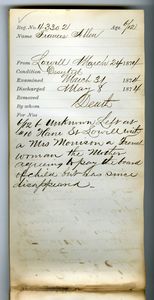 Reg. No. 43302 Age 6/12
Name Francis Allen
From Lowell March 24 1874
Condition Deserted
Examined March 31, 1874
Discharged May 8 1874
Removed
By whom Death
For No.
6/12 b Unknown Left at
No Kane St Lowell with
a Mrs Morrison a French
woman the Mother
agreeing to pay the board
of child but has since
disappeared